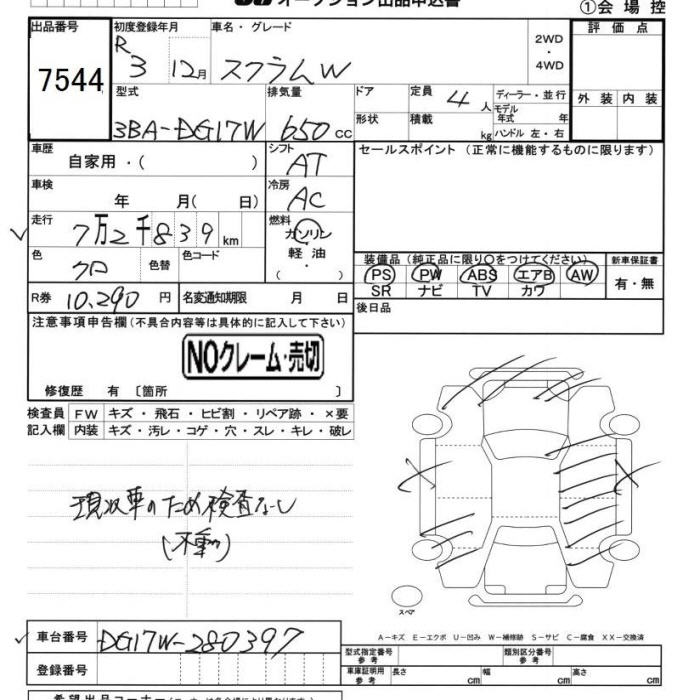 オークション出品申込書
①会場控
出品番号
7544
初度登録年月
R 3 12月
車名・グレード
スクラムW
2WD
・
4WD
評価点
外装 内装
型式
3BA-DG17W
排気量
650 cc
ドア
定員 4 人
ディーラー・並行
形状
積載 kg
モデル年式 年
ハンドル 左・右
車歴
自家用・( )
シフト
AT
セールスポイント(正常に機能するものに限ります)
車検
年 月( 日)
冷房
AC
走行
7万2千839 km
燃料
ガソリン
軽油
・
( )
色
クロ
色替
色コード
装備品(純正品に限り○をつけてください)
PS PW ABS エアB AW
SR ナビ TV カワ
新車保証書
有・無
R券 10,290 円
名変通知期限 月 日
後日品
注意事項申告欄(不具合内容等は具体的に記入して下さい)
NOクレーム・売切
修復歴 有 〔箇所 〕
検査員 FW キズ・飛石・ヒビ割・リペア跡・×要
記入欄 内装 キズ・汚レ・コゲ・穴・スレ・キレ・破レ
現状車のため検査なし
(不動)
スペア
A-キズ E-エクボ U-凹み W-補修跡 S-サビ C-腐食 XX-交換済
車台番号 DG17W-280397
登録番号
型式指定番号 参考
類別区分番号 参考
車庫証明用 参考 長さ cm 幅 cm 高さ cm